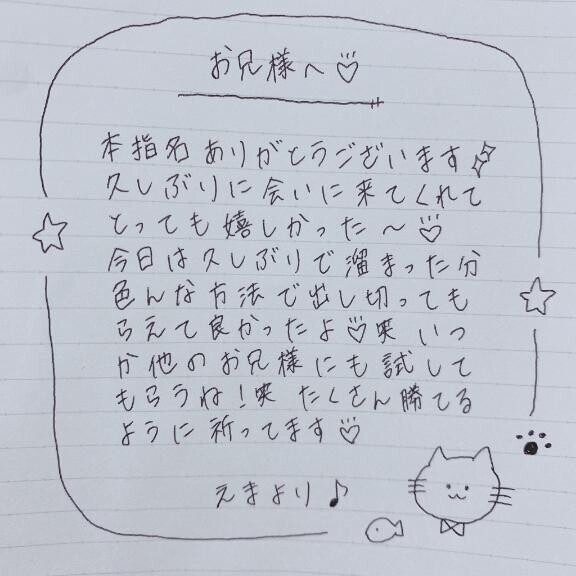 お兄様へ♡
本指名ありがとうございます
久しぶりに会いに来てくれて
とっても嬉しかった〜♡
今日は久しぶりで溜まった分
色んな方法で出し切っても
らえて良かったよ♡笑 いつ
か他のお兄様にも試して
もらうね!笑 たくさん勝てる
ように祈ってます♡
えまより♪